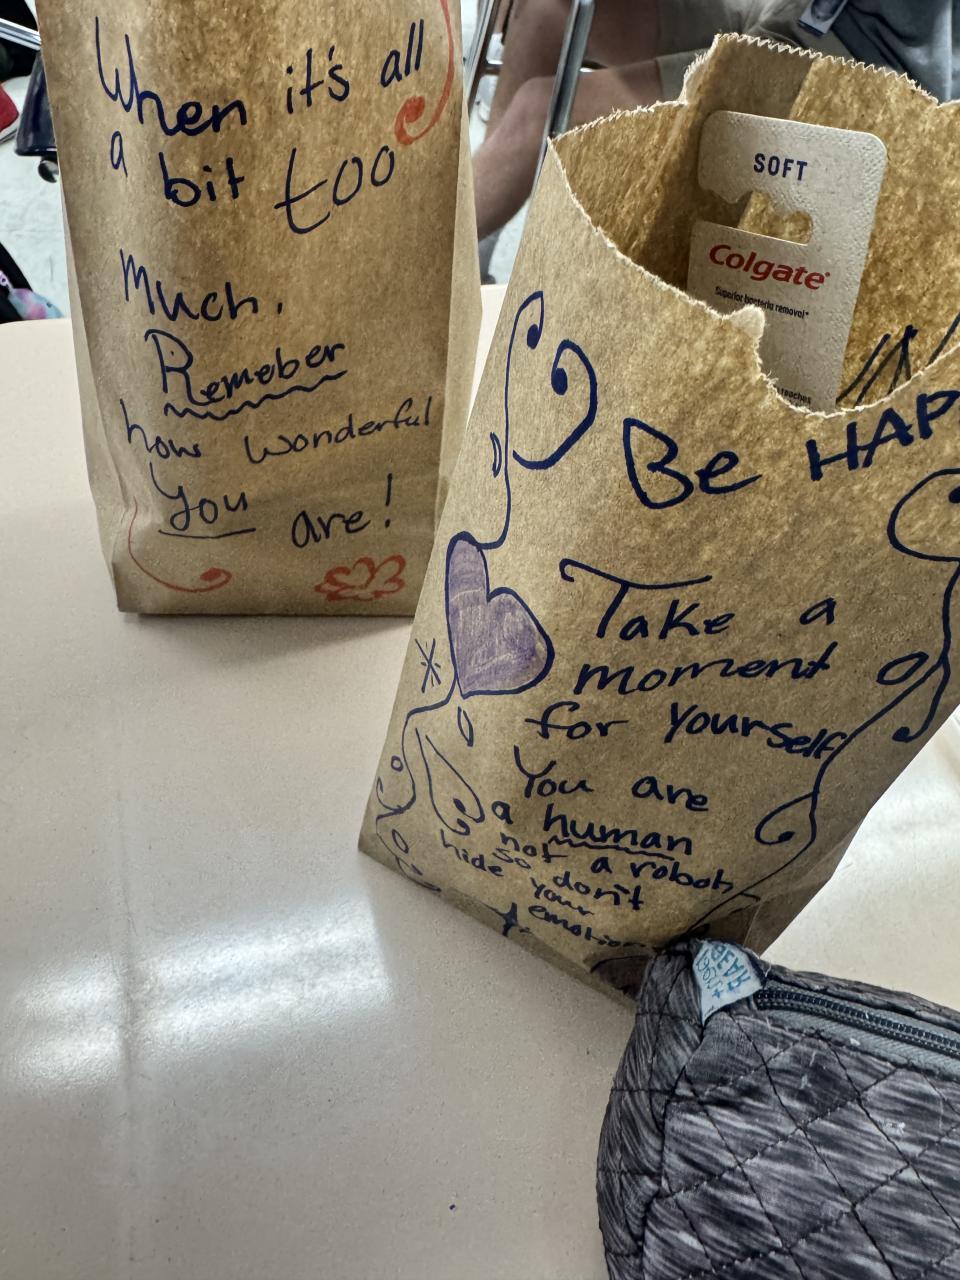 When it's all
a bit too
Much,
Remeber
how wonderful
You are!
SOFT
Colgate®
Superior bacteria removal*
reaches
Be HAPP
Take a
moment
for yourself
You are
a human
not a robot,
so don't
hide your
emotion